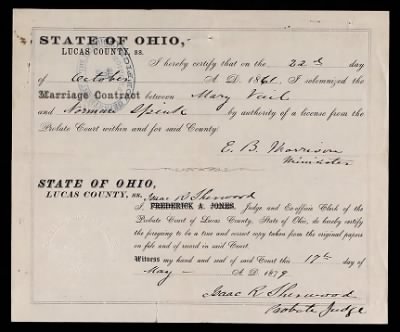 STATE OF OHIO,
LUCAS COUNTY, ss.
I hereby certify that on the 22d day
of October A. D. 1861 I solemnized the
Marriage Contract between Mary Vail
and Norman Spink by authority of a license from the
Probate Court within and for said County.
E. B. Morrison
Minister
STATE OF OHIO,
LUCAS COUNTY, ss.
Isaac R Sherwood
I, FREDERICK A. JONES, Judge and Ex-officio Clerk of the
Probate Court of Lucas County, State of Ohio, do hereby certify
the foregoing to be a true and correct copy taken from the original papers
on file and of record in said Court.
Witness my hand and seal of said Court this 17th day of
May A. D. 1879
Isaac R. Sherwood
Probate Judge